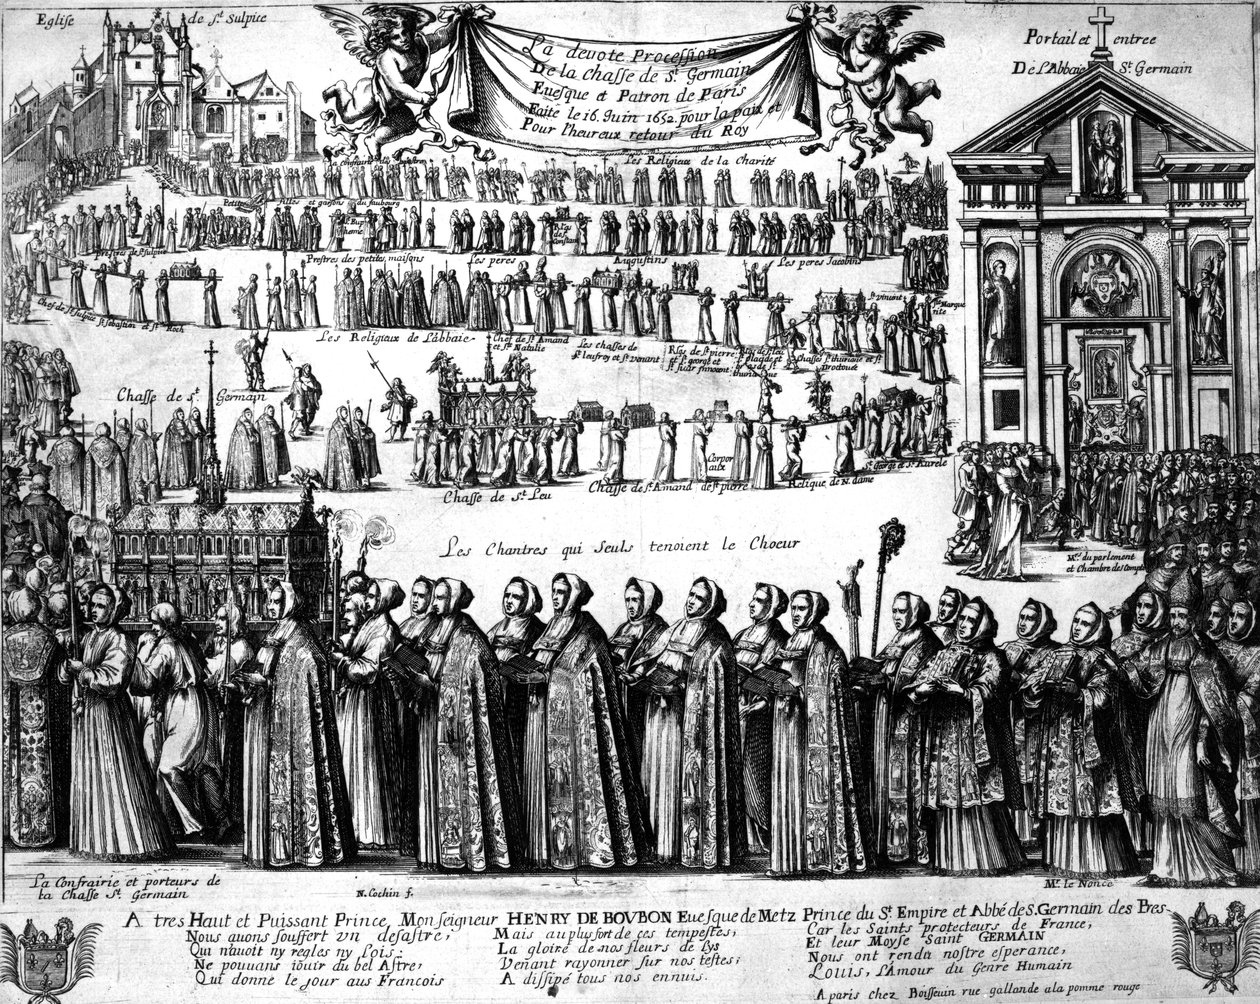 Eglise de St. Sulpice
La devote Procession
De la Chasse de St. Germain
Euesque et Patron de Paris
Faite le 16. Juin 1652. pour la paix et
Pour l'heureux retour du Roy
Portail et entree
De L'Abbaie St. Germain
Les Religieux de la Charité
Petites filles et garsons du faubourg
Prestres de St. Sulpice
Prestres des petites maisons
Les peres Augustins
Les peres Jacobins
Chef de St. Sulpice St. Sebastien et St. Roch
Les Religieux de L'abbaie
Chef de St. Amand
et Ste. Natalie
Les chasses de
St. leufroy et St. venant
St. vincent
Ste. Margue
rite
Chasse de St. Germain
Corpor
aux
St. george et St. Aurele
Chasse de St. Leu
Chasse de St. Amand de St. pierre
Relique de N. dame
Les Chantres qui seuls tenoient le Choeur
Mrs. du parlement
et Chambre des Compte
La Confrairie et porteurs de
la Chasse St. Germain
N. Cochin f.
Mr. le Nonce
A tres Haut et Puissant Prince, Monseigneur HENRY DE BOVBON Euesque de Metz Prince du St. Empire et Abbé de S. Germain des Pres
Nous auons souffert vn desastre,
Qui nauoit ny regles ny lois:
Ne pouuans iöuir du bel Astre,
Qui donne le jour aus Francois
Mais au plus fort de ces tempestes,
La gloire de nos fleurs de lys
Venant rayonner sur nos testes,
A dissipé tous nos ennuis.
Car les Saints protecteurs de France,
Et leur Moyse Saint GERMAIN
Nous ont rendu nostre esperance,
Louis, L'Amour du Genre Humain
A paris chez Boisseuin rue gallande a la pomme rouge